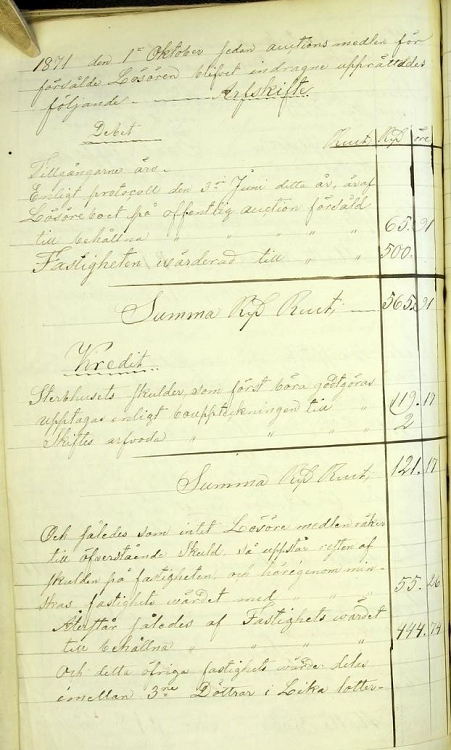 1871 den 1st Oktober sedan auctions medlen för
försålde Lösören blifvet indragne upprättades
följande Arfskifte
Debet
Rmt, RD öre
Tillgångarne äro.
Enligt protocoll den 3:ie Juni detta år, äraf
Lösöreboet på offentlig auction försåld
till behållna " " " " 65. 91
Fastigheten wärderad till " " 500.
Summa RD Rmt, 565. 91
Kredit
Sterbhusets skulder, som först böra godtgöras
upptagas enligt bouppteckningen till " 119. 17
Skiftes arfvode " " " " 2
Summa RD Rmt, 121. 17
Och således som intet Lösöre medlen räker
till ofverstående skuld, så uppstår resten af
skulden på fastigheten, och härigenom min-
skas fastighets wärdet med " " 55. 26
Återstår således af Fastighets wärdet
till behållna " " " " 444. 74
Och detta öfriga fastighets wärde deles
imellan 3ne Döttrar i Lika lotter-